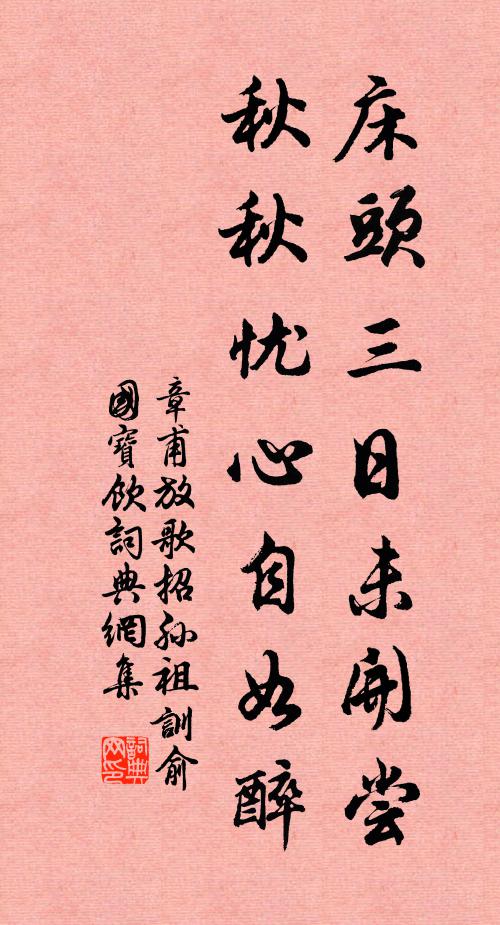 床頭三日未開嘗
秋秋忧心自如醉
章甫放歌招孙祖訓俞
國寶飲詞典網集
詞典网印